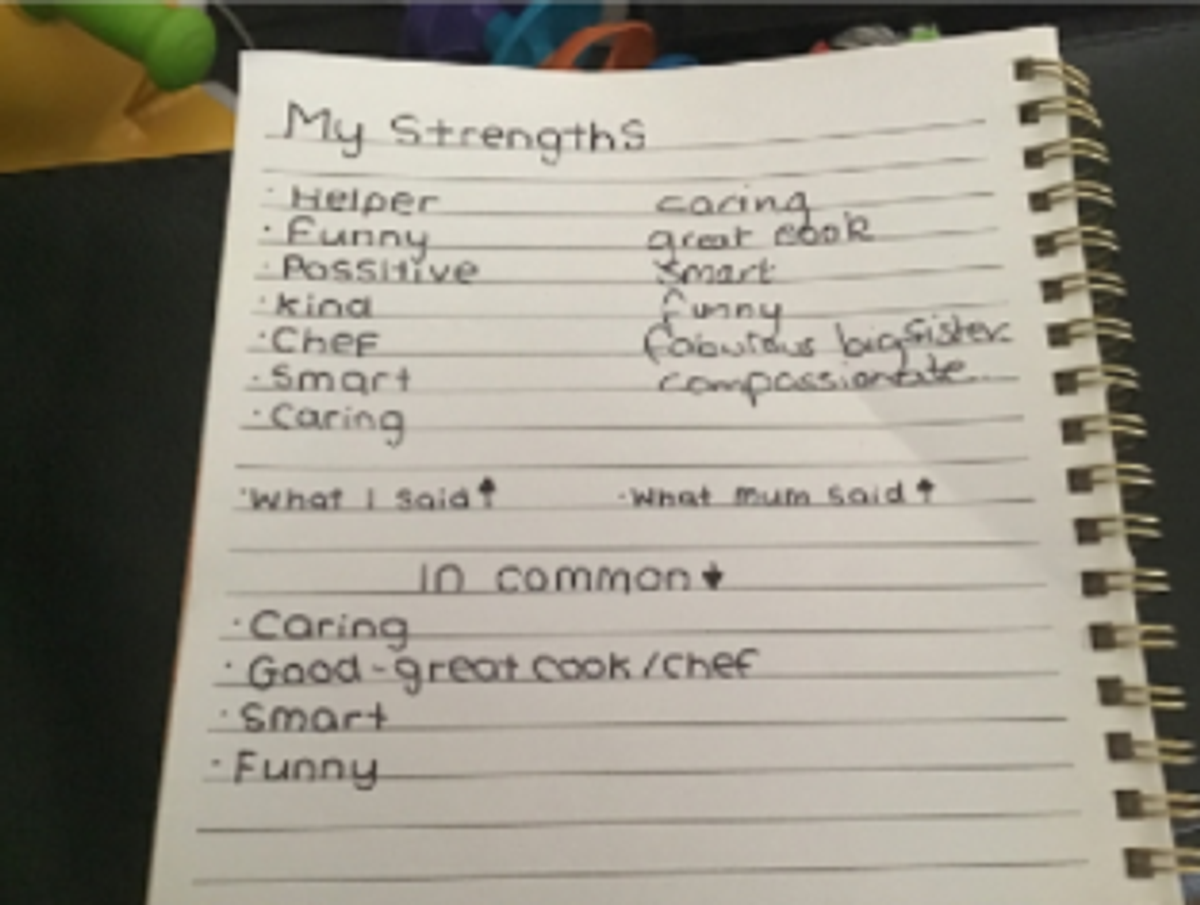 My Strengths
· Helper caring
· Funny great cook
· Possitive smart
· Kind funny
· Chef fabulous big sister
· Smart compassionate
· Caring
· What I said ↑ · What mum said ↑
In common ↓
· Caring
· Good - great cook / chef
· Smart
· Funny